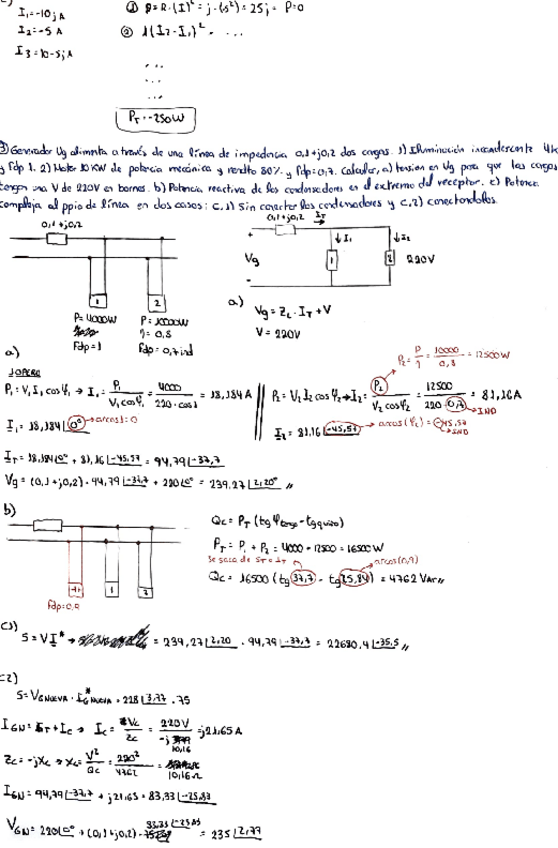 I₁=-10j A
I₂=-5 A
I₃=10-5j A
① P=R·(I)²=j·(5²)=25j=P=0
② 1(I₂-I₁)²= ...
...
...
P_T=-250W
③ Generador Ug alimenta a través de una línea de impedancia 0,1+j0,2 dos cargas. 1) Iluminación incandescente 4k
y Fdp 1. 2) Motor 10KW de potencia mecánica y rendto 80% y Fdp=0,7. Calcular, a) tensión en Ug para que las cargas
tengan una V de 220V en bornes. b) Potencia reactiva de los condensadores en el extremo del receptor. c) Potencia
compleja al ppio de línea en dos casos: c.1) Sin conectar los condensadores y c.2) conectandolos.
0,1+j0,2
1
2
P=4000W
Fdp=1
P=10000W
η=0,8
Fdp=0,7ind
0,1+j0,2
I_T
+
Vg
-
↓I₁
1
↓I₂
2
220V
a)
Vg=Z_L·I_T+V
V=220V
a)
P₁=V₁I₁cosφ₁→I₁=P₁/(V₁cosφ₁)=4000/(220·cos1)=18,184A
I₁=18,184|0° → arccos1=0
P₂=P/η=10000/0,8=12500W
P₂=V₂I₂cosφ₂→I₂=P₂/(V₂cosφ₂)=12500/(220·0,7)=81,16A
IND
I₂=81,16|-45,57 → arcos(φ₂)=-45,57
IND
I_T=18,184|0°+81,16|-45,57=94,79|-37,7
Vg=(0,1+j0,2)·94,79|-37,7+220|0°=239,27|2,20° //
b)
1
2
Fdp=0,9
Qc=P_T(tgφtengo-tgquiero)
P_T=P₁+P₂=4000-12500=16500W
Se saca de S_T=I_T
arcos(0,9)
Qc=16500(tg37,7-tg25,84)=4762VAr//
C1)
S=VI*→=239,27|2,20·94,79|-37,7=22680,4|-35,5 //
c2)
S=V_GNUEVA·I*_GNUEVA=228|3,77·75
I_GN=I_T+I_C→I_C=V_C/Z_C=220V/-j10,16=j21,65A
Z_C=-jX_C→X_C=V²/Q_C=220²/4762=10,16Ω
I_GN=94,79|-37,7+j21,65=83,33|-25,83
V_GN=220|0°+(0,1+j0,2)·83,33|-25,83=235|2,77